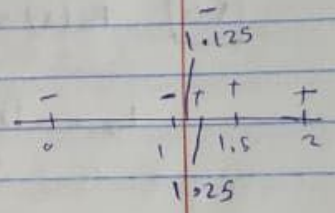 −
1.125
− − + + +
0 1 1.5 2
1.25